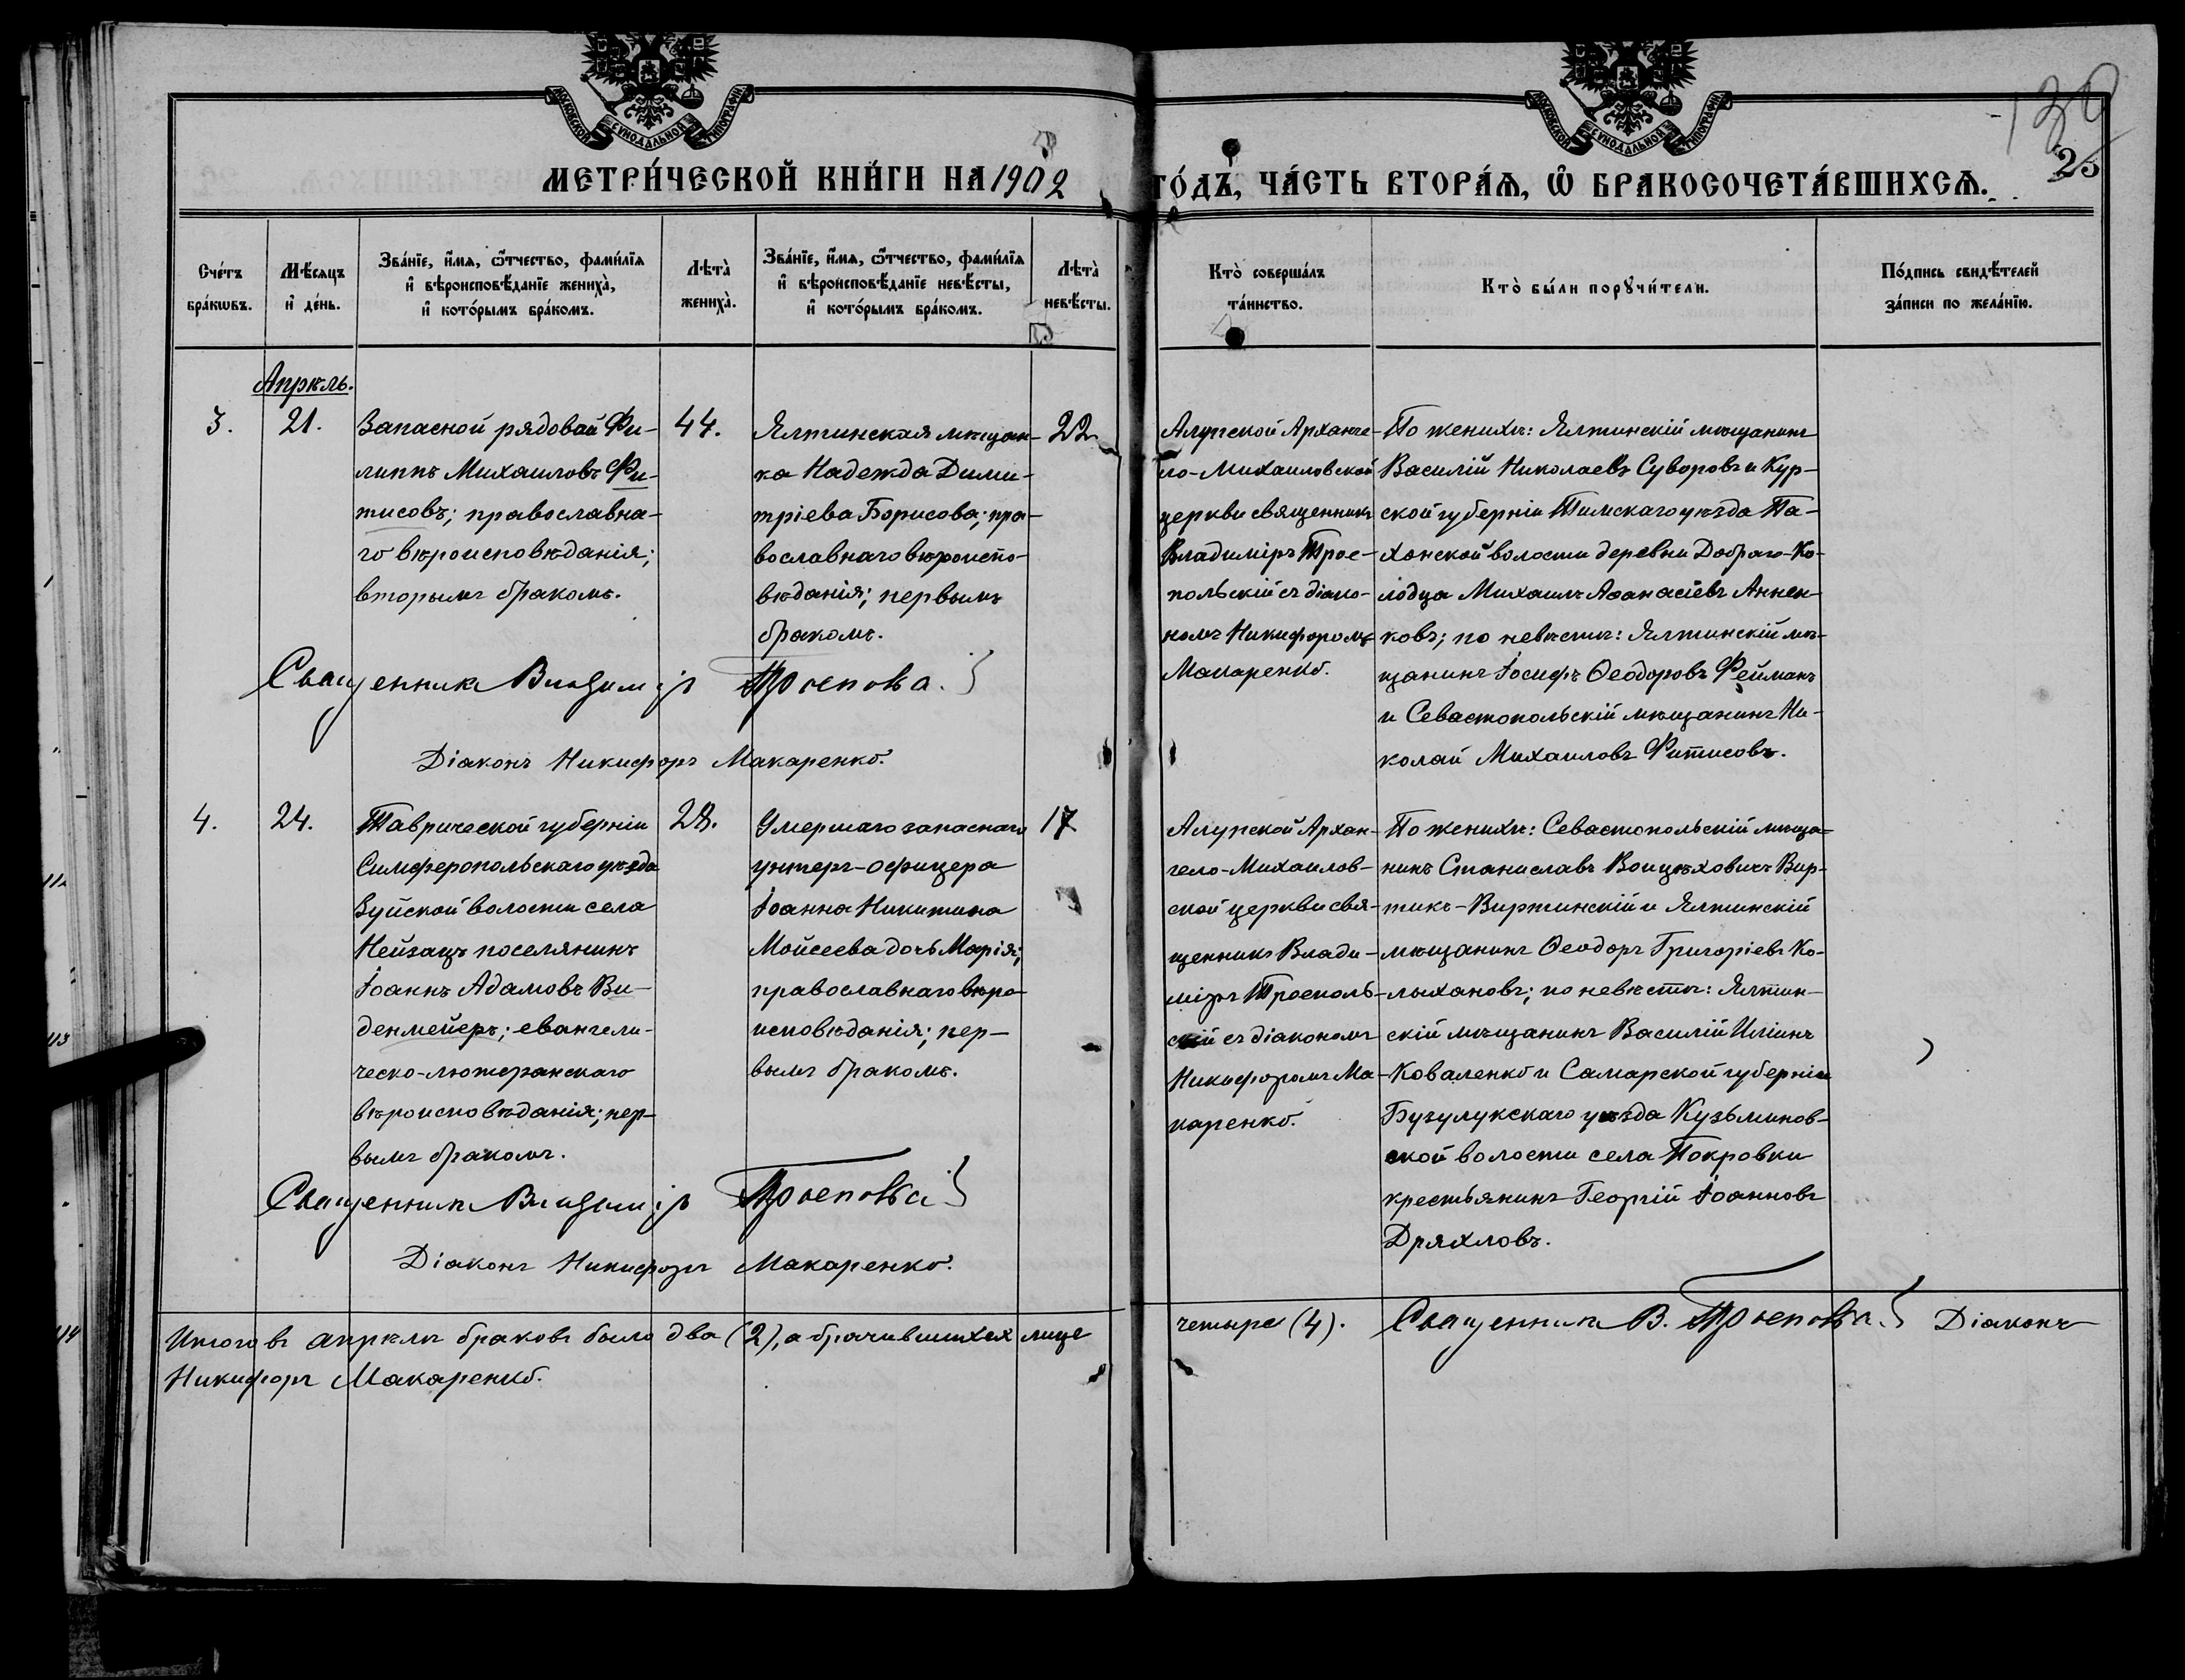 МОСКОВСКОЙ СУНОДАЛЬНОЙ ТИПОГРАФІИ
МОСКОВСКОЙ СУНОДАЛЬНОЙ ТИПОГРАФІИ
МЕТРИ́ЧЕСКОЙ КНИ́ГИ НА 1902 ГО́ДЪ, ЧА́СТЬ ВТОРА́Я, Ѿ БРАКОСОЧЕТА́ВШИХСЯ.
139
25
Сче́тъ бра́кωвъ.
Мѣ́сяцъ и҆ де́нь.
Зва́нїе, и҆́мя, ѻ҆́тчество, фами́лїя и҆ вѣроисповѣ́данїе жениха̀, и҆ кото́рымъ бра́комъ.
Лѣта̀ жениха̀.
Зва́нїе, и҆́мя, ѻ҆́тчество, фами́лїя и҆ вѣроисповѣ́данїе невѣ́сты, и҆ кото́рымъ бра́комъ.
Лѣта̀ невѣ́сты.
Кто̀ соверша́лъ та́инство.
Кто̀ бы́ли порꙋчи́тели.
По́дпись свидѣ́телей за́писи по жела́нїю.
Апрѣль.
3.
21.
Запасной рядовой Фи-
липпъ Михаиловъ Фи-
тисовъ; православна-
го вѣроисповѣданія;
вторымъ бракомъ.
44.
Ялтинская мѣщан-
ка Надежда Дими-
тріева Борисова; пра-
вославнаго вѣроиспо-
вѣданія; первымъ
бракомъ.
22
Алупской Арханге-
ло-Михаиловской
церкви священникъ
Владиміръ Трое-
польскій съ діако-
номъ Никифоромъ
Макаренко.
По женихѣ: Ялтинскій мѣщанинъ
Василій Николаевъ Суворовъ и Кур-
ской губерніи Тимскаго уѣзда Па-
ханской волости деревни Добраго-Ко-
лодца Михаилъ Аѳанасіевъ Аннен-
ковъ; по невѣстѣ: Ялтинскій мѣ-
щанинъ Іосифъ Ѳеодоровъ Фейманъ
и Севастопольскій мѣщанинъ Ни-
колай Михаиловъ Фитисовъ.
Священникъ Владиміръ
Діаконъ Никифоръ Макаренко.
4.
24.
Таврической губерніи
Симферопольскаго уѣзда
Зуйской волости села
Нейзацъ поселянинъ
Іоаннъ Адамовъ Ви-
денмейеръ; евангели-
ческо-лютеранскаго
вѣроисповѣданія; пер-
вымъ бракомъ.
28.
Умершаго запаснаго
унтеръ-офицера
Іоанна Никитина
Мойсеева дочь Марія;
православнаго вѣро-
исповѣданія; пер-
вымъ бракомъ.
17
Алупской Архан-
гело-Михаилов-
ской церкви свя-
щенникъ Влади-
міръ Троеполь-
скій съ діакономъ
Никифоромъ Ма-
каренко.
По женихѣ: Севастопольскій мѣща-
нинъ Станиславъ Воицѣховичъ Вир-
тикъ-Виртинскій и Ялтинскій
мѣщанинъ Ѳеодоръ Григоріевъ Ко-
лыхановъ; по невѣстѣ: Ялтин-
скій мѣщанинъ Василій Иліинъ
Коваленко и Самарской губерніи
Бузулукскаго уѣзда Кузьминов-
ской волости села Покровки
крестьянинъ Георгій Іоанновъ
Дряхловъ.
Священникъ Владиміръ
Діаконъ Никифоръ Макаренко.
Итого въ апрѣлѣ браковъ было два (2), а брачившихся лице четыре (4). Священникъ В. Діаконъ
Никифоръ Макаренко.